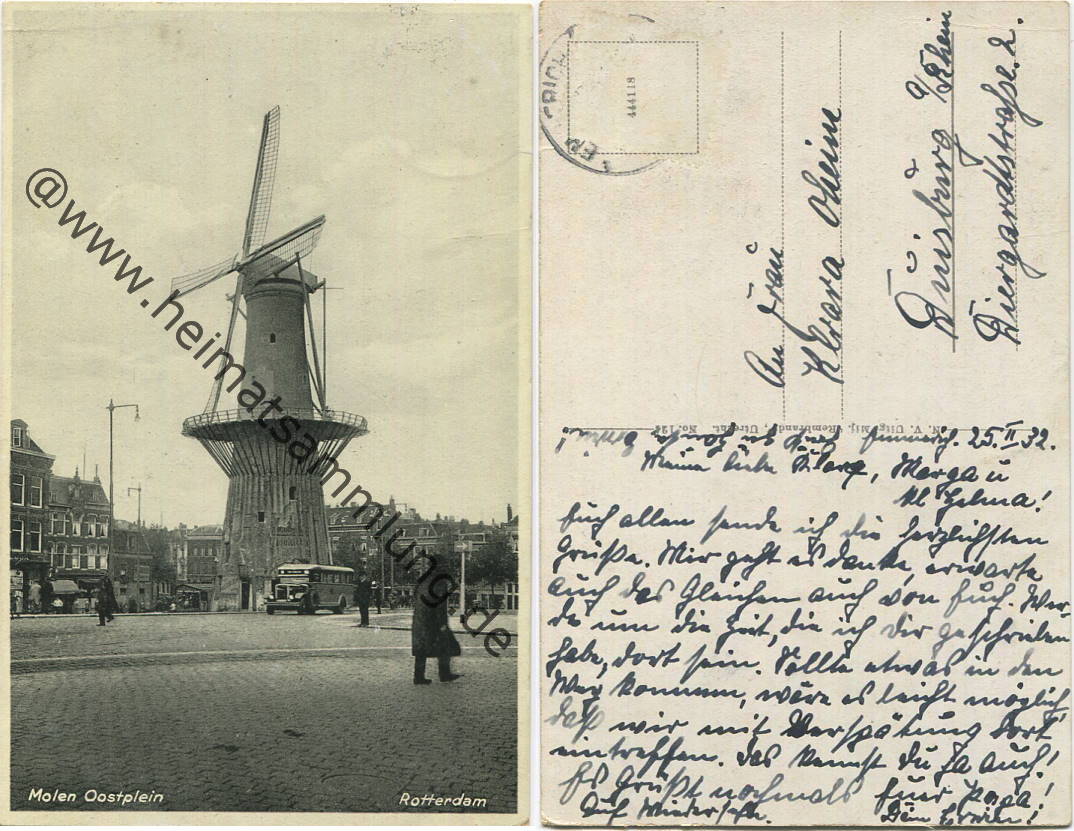 @www.heimatsammlung.de
Molen Oostplein
Rotterdam
444118
An Frau
Klara Oheim
Duisburg a/Rhein
Diergardtstrasse. 2.
N. V. Uitg. Mij. „Rembrandt“, Utrecht. No. 124
25.II.32.
Meine liebe Klara, Marga u
kl Helma!
Euch allen sende ich die herzlichsten
Grüße. Mir geht es danke, erwarte
auch das Gleichen auch von Euch. Wer-
de um die Zeit, die ich Dir geschrieben
habe, dort sein. Sollte etwas in den
Weg kommen, wäre es leicht möglich,
daß wir mit Verspätung dort
eintreffen. Das kennst Du ja auch!
Es grüßt nochmals Euer Papa!
Auf Wiedersehn. Dein Erwin!